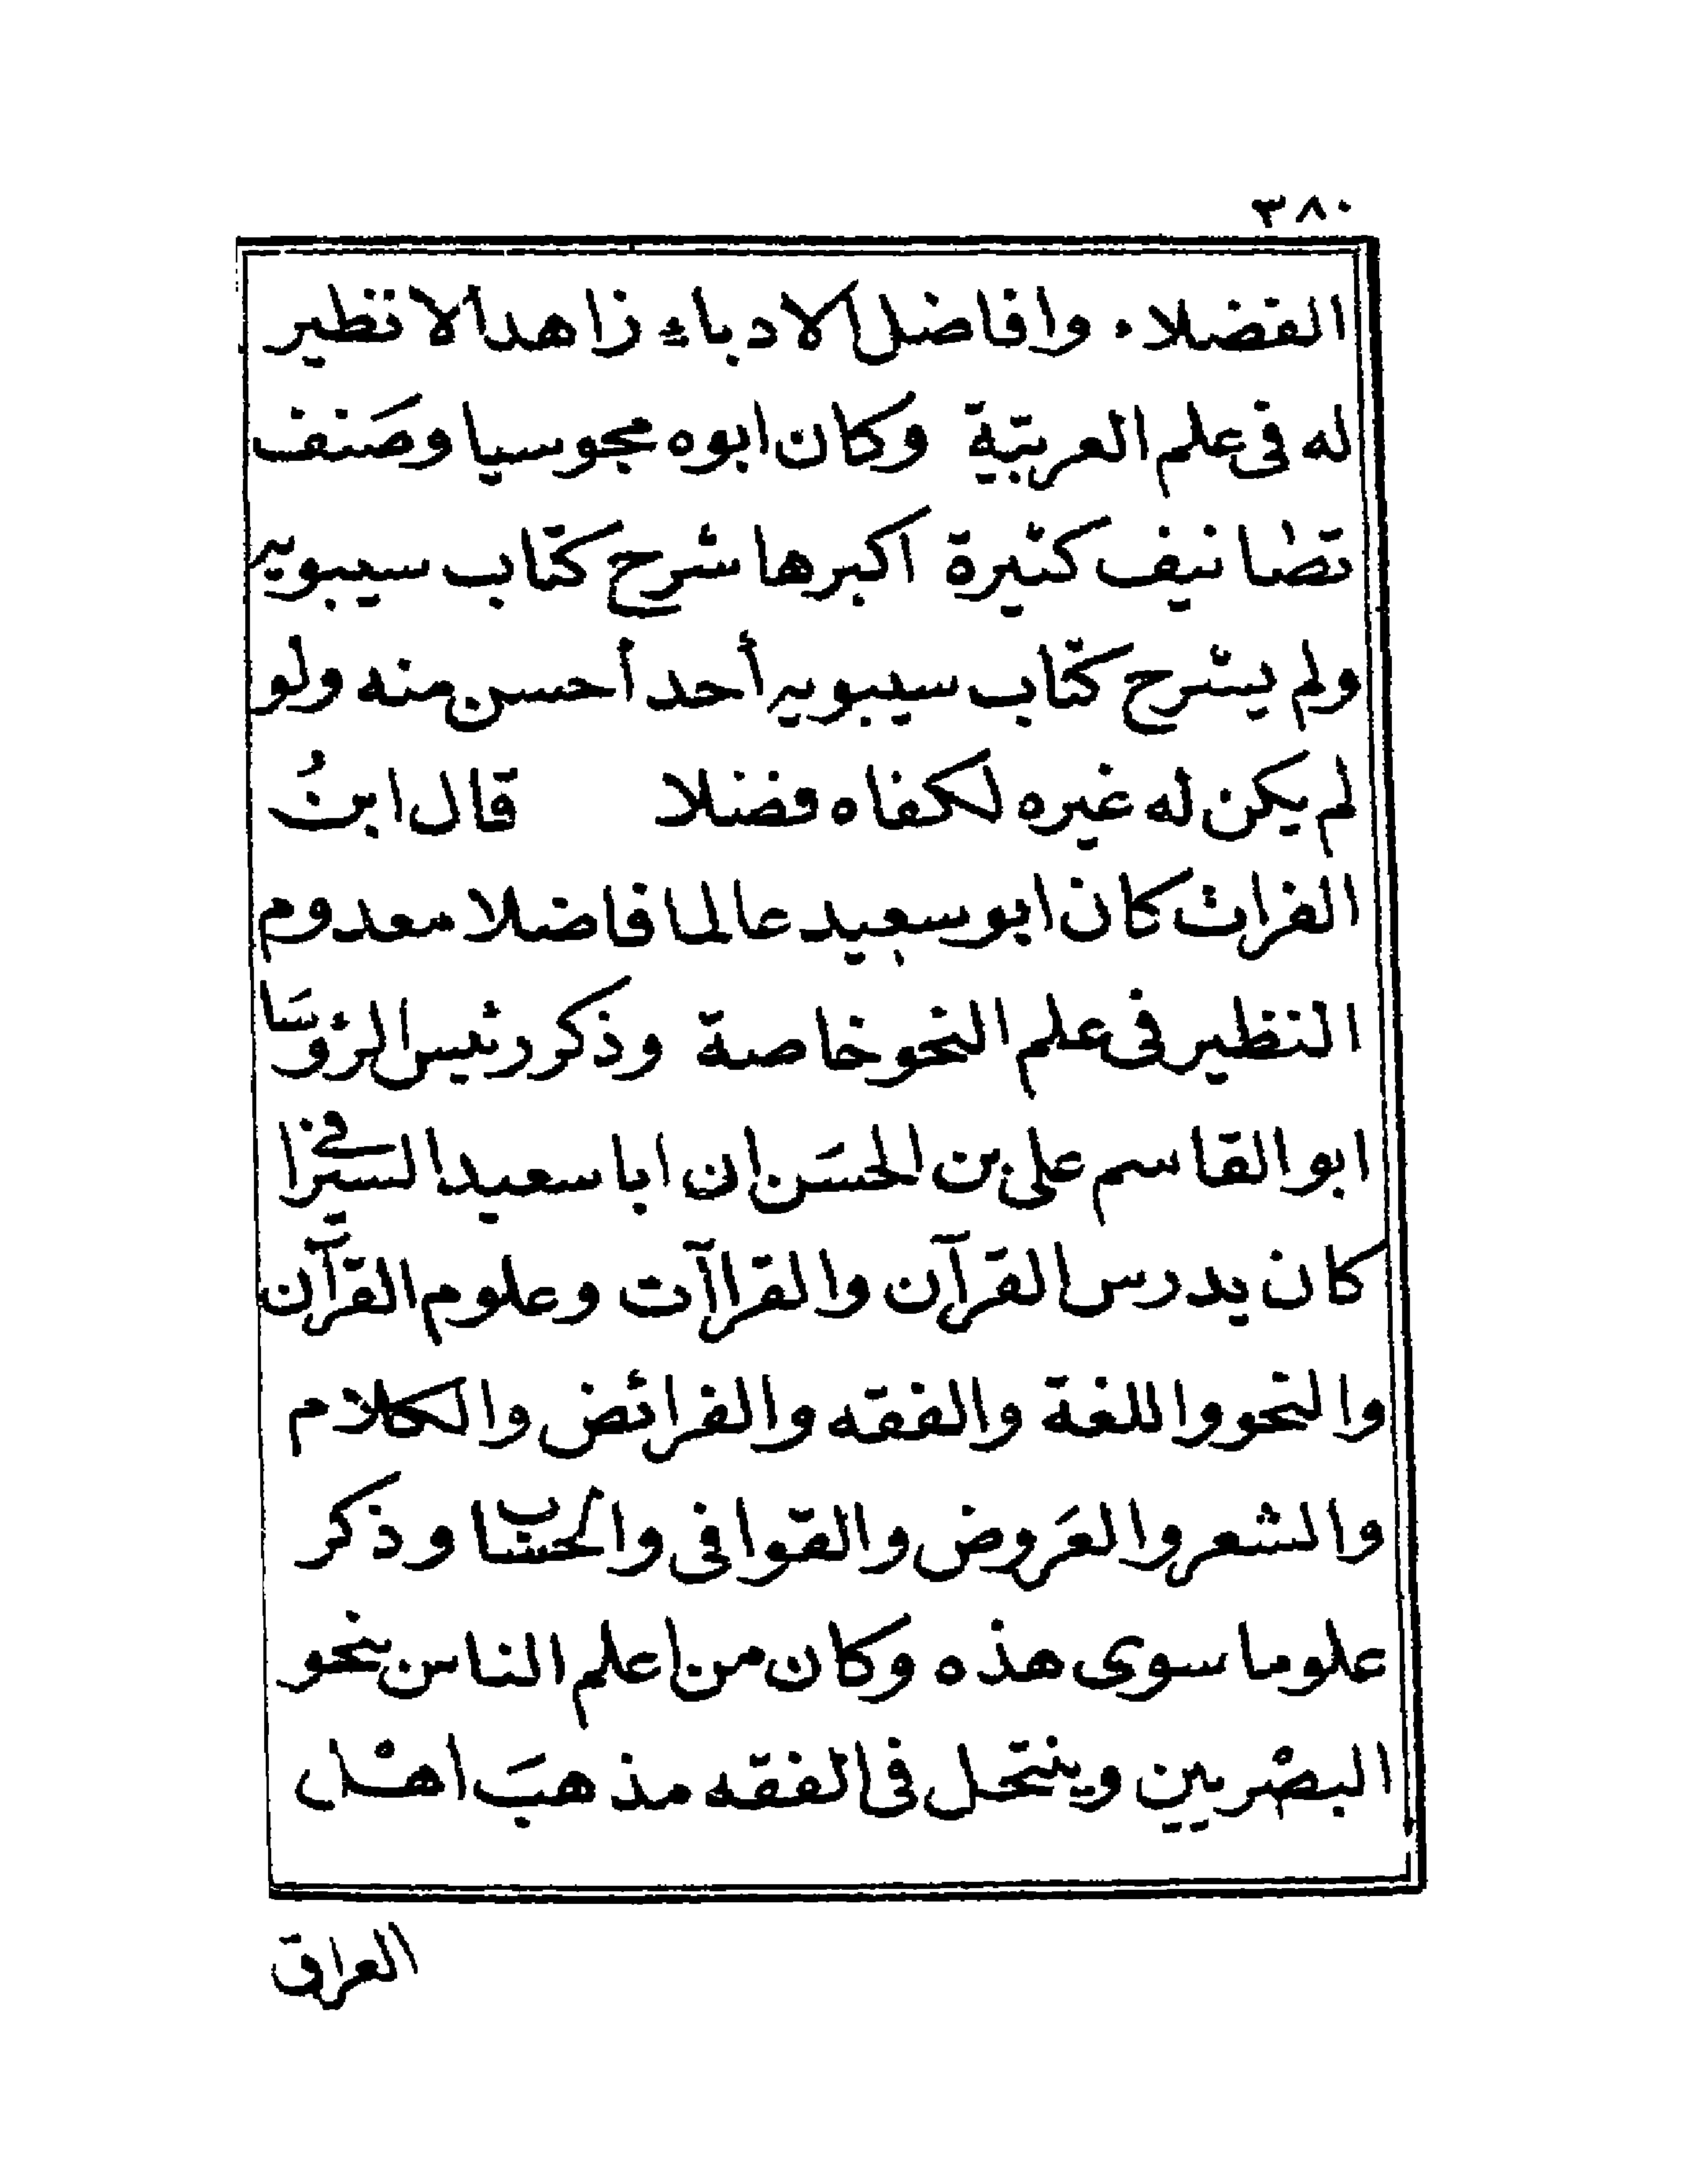 ٣٨٠
الفضلاء وافاضل الادباء زاهدا لا نظير
له فى علم العربيّة وكان ابوه مجوسيا وصَنف
تصانيف كثيرة اكبرها شرح كتاب سيبويه
ولم يشرح كتاب سيبويه أحد أحسن منه ولو
لم يكن له غيره لكفاه فضلا قال ابنُ
الفرات كان ابو سعيد عالما فاضلا معدوم
النظير فى علم النحو خاصة وذكر رئيس الرؤسَا
ابو القاسم على بن الحسَن ان ابا سعيد السيرافى
كان يدرس القرآن والقراآت وعلوم القرآن
والنحو واللغة والفقه والفرائض والكلام
والشعر والعَروض والقوافى والحساب وذكر
علوما سوى هذه وكان من اعلم الناس بنحو
البصْريين وينتحل فى الفقه مذهبَ اهْل
العراق